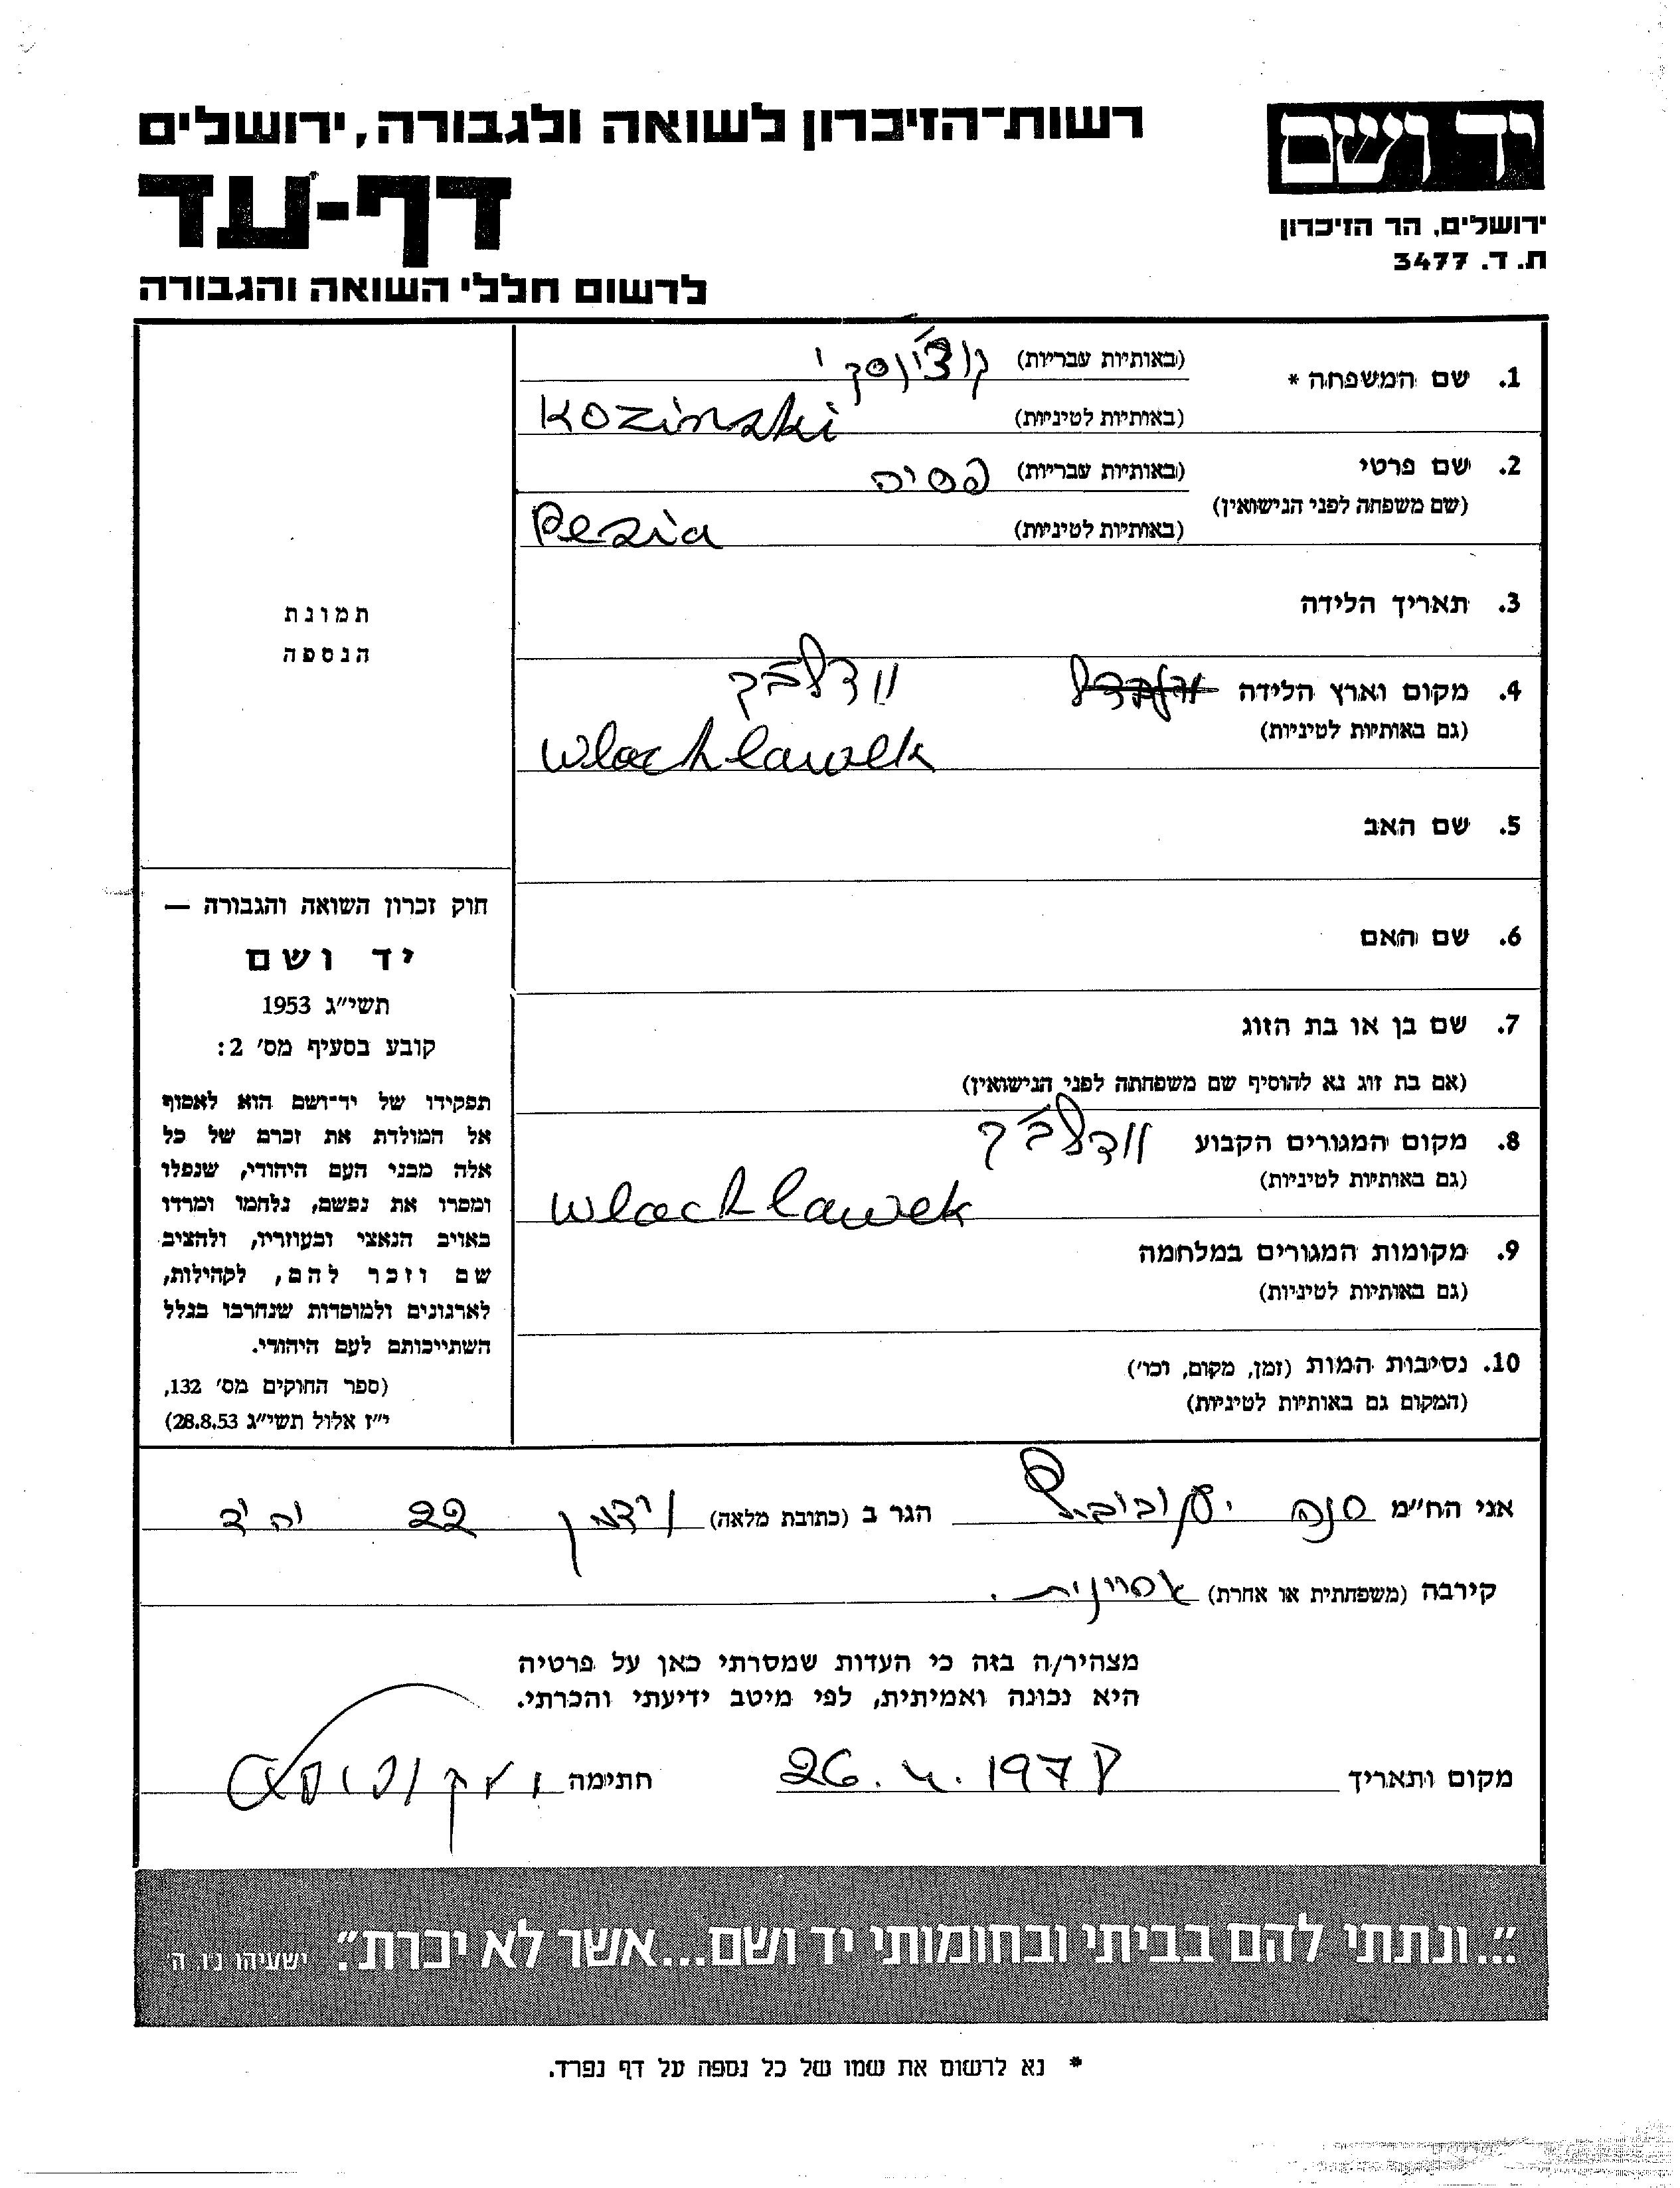 רשות־הזיכרון לשואה ולגבורה, ירושלים
דף-עד
לרשום חללי השואה והגבורה
יד ושם
ירושלים, הר הזיכרון
ת. ד. 3477
1. שם המשפחה * (באותיות עבריות) קוז'ינסקי
(באותיות לטיניות) Kozinski
2. שם פרטי (באותיות עבריות) פסיה
(שם משפחה לפני הנישואין)
(באותיות לטיניות) Pesia
3. תאריך הלידה
4. מקום וארץ הלידה
(גם באותיות לטיניות)
Wlochlawek
5. שם האב
6. שם האם
7. שם בן או בת הזוג
(אם בת זוג נא להוסיף שם משפחתה לפני הנישואין)
8. מקום המגורים הקבוע
(גם באותיות לטיניות)
Wlochlawek
9. מקומות המגורים במלחמה
(גם באותיות לטיניות)
10. נסיבות המות (זמן, מקום, וכו')
(המקום גם באותיות לטיניות)
תמונת
הנספה
חוק זכרון השואה והגבורה —
יד ושם
תשי״ג 1953
קובע בסעיף מס' 2:
תפקידו של יד־ושם הוא לאסוף
אל המולדת את זכרם של כל
אלה מבני העם היהודי, שנפלו
ומסרו את נפשם, נלחמו ומרדו
באויב הנאצי ובעוזריו, ולהציב
שם וזכר להם, לקהילות,
לארגונים ולמוסדות שנחרבו בגלל
השתייכותם לעם היהודי.
(ספר החוקים מס' 132,
י״ז אלול תשי״ג 28.8.53)
אני הח״מ הגר ב (כתובת מלאה) 22
קירבה (משפחתית או אחרת)
מצהיר/ה בזה כי העדות שמסרתי כאן על פרטיה
היא נכונה ואמיתית, לפי מיטב ידיעתי והכרתי.
מקום ותאריך 26.4.1978 חתימה
״...ונתתי להם בביתי ובחומותי יד ושם...אשר לא יכרת״. ישעיהו נ״ו, ה'
* נא לרשום את שמו של כל נספה על דף נפרד.